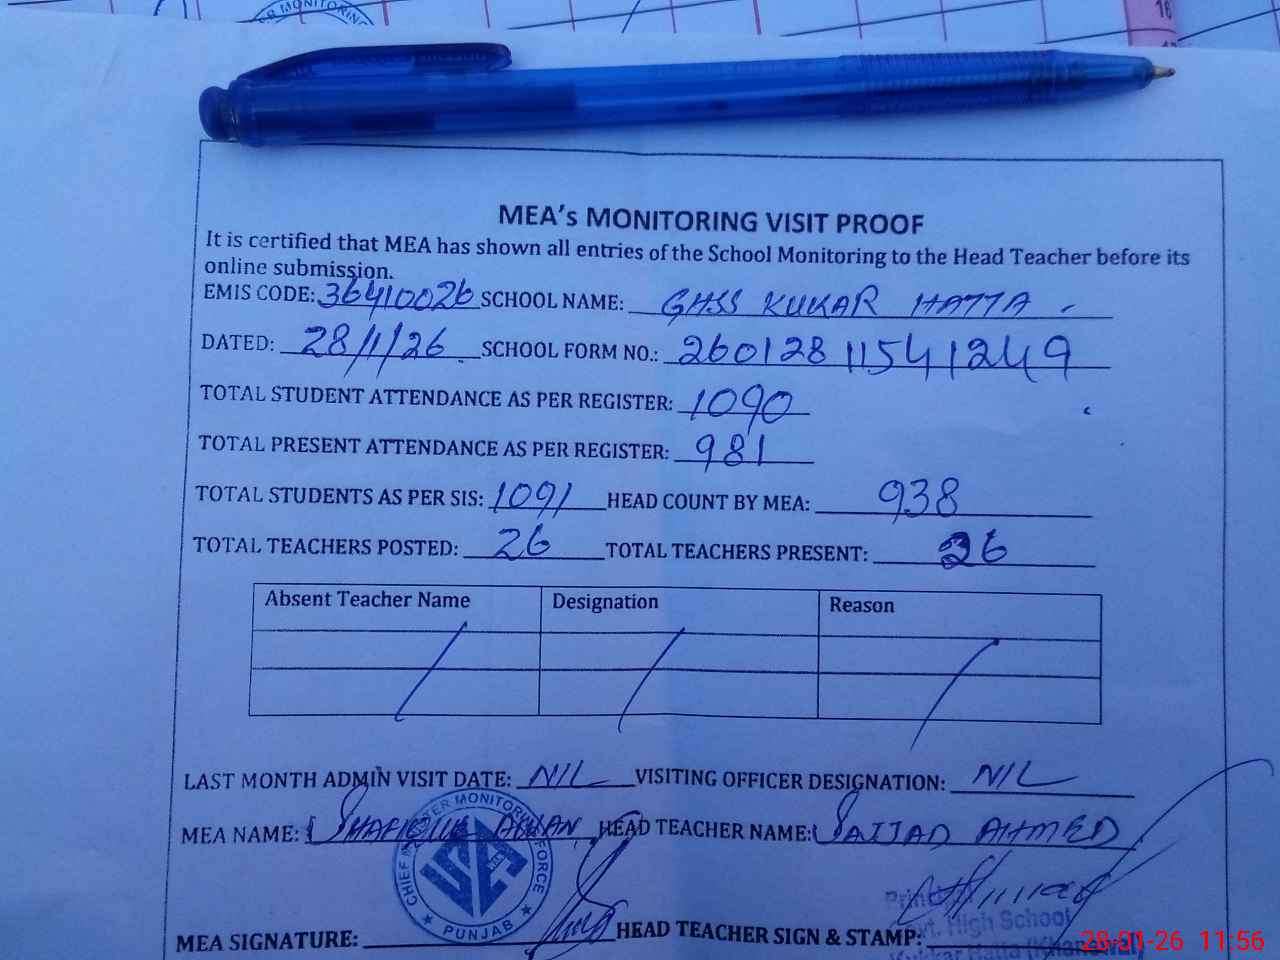 ER MONITORING
16
MEA's MONITORING VISIT PROOF
It is certified that MEA has shown all entries of the School Monitoring to the Head Teacher before its
online submission.
EMIS CODE: 36410026 SCHOOL NAME: GHSS KUKAR HATTA
DATED: 28/1/26 SCHOOL FORM NO.: 26012811541249
TOTAL STUDENT ATTENDANCE AS PER REGISTER: 1090
TOTAL PRESENT ATTENDANCE AS PER REGISTER: 981
TOTAL STUDENTS AS PER SIS: 1091 HEAD COUNT BY MEA: 938
TOTAL TEACHERS POSTED: 26 TOTAL TEACHERS PRESENT: 26
Absent Teacher Name Designation Reason
LAST MONTH ADMIN VISIT DATE: NIL VISITING OFFICER DESIGNATION: NIL
MEA NAME: HEAD TEACHER NAME: SAJJAD AHMED
CHIEF MINISTER MONITORING FORCE
PUNJAB
MEA SIGNATURE: HEAD TEACHER SIGN & STAMP:
Principal
Govt. High School
Kukkar Hatta (Khanewal)
28-01-26 11:56